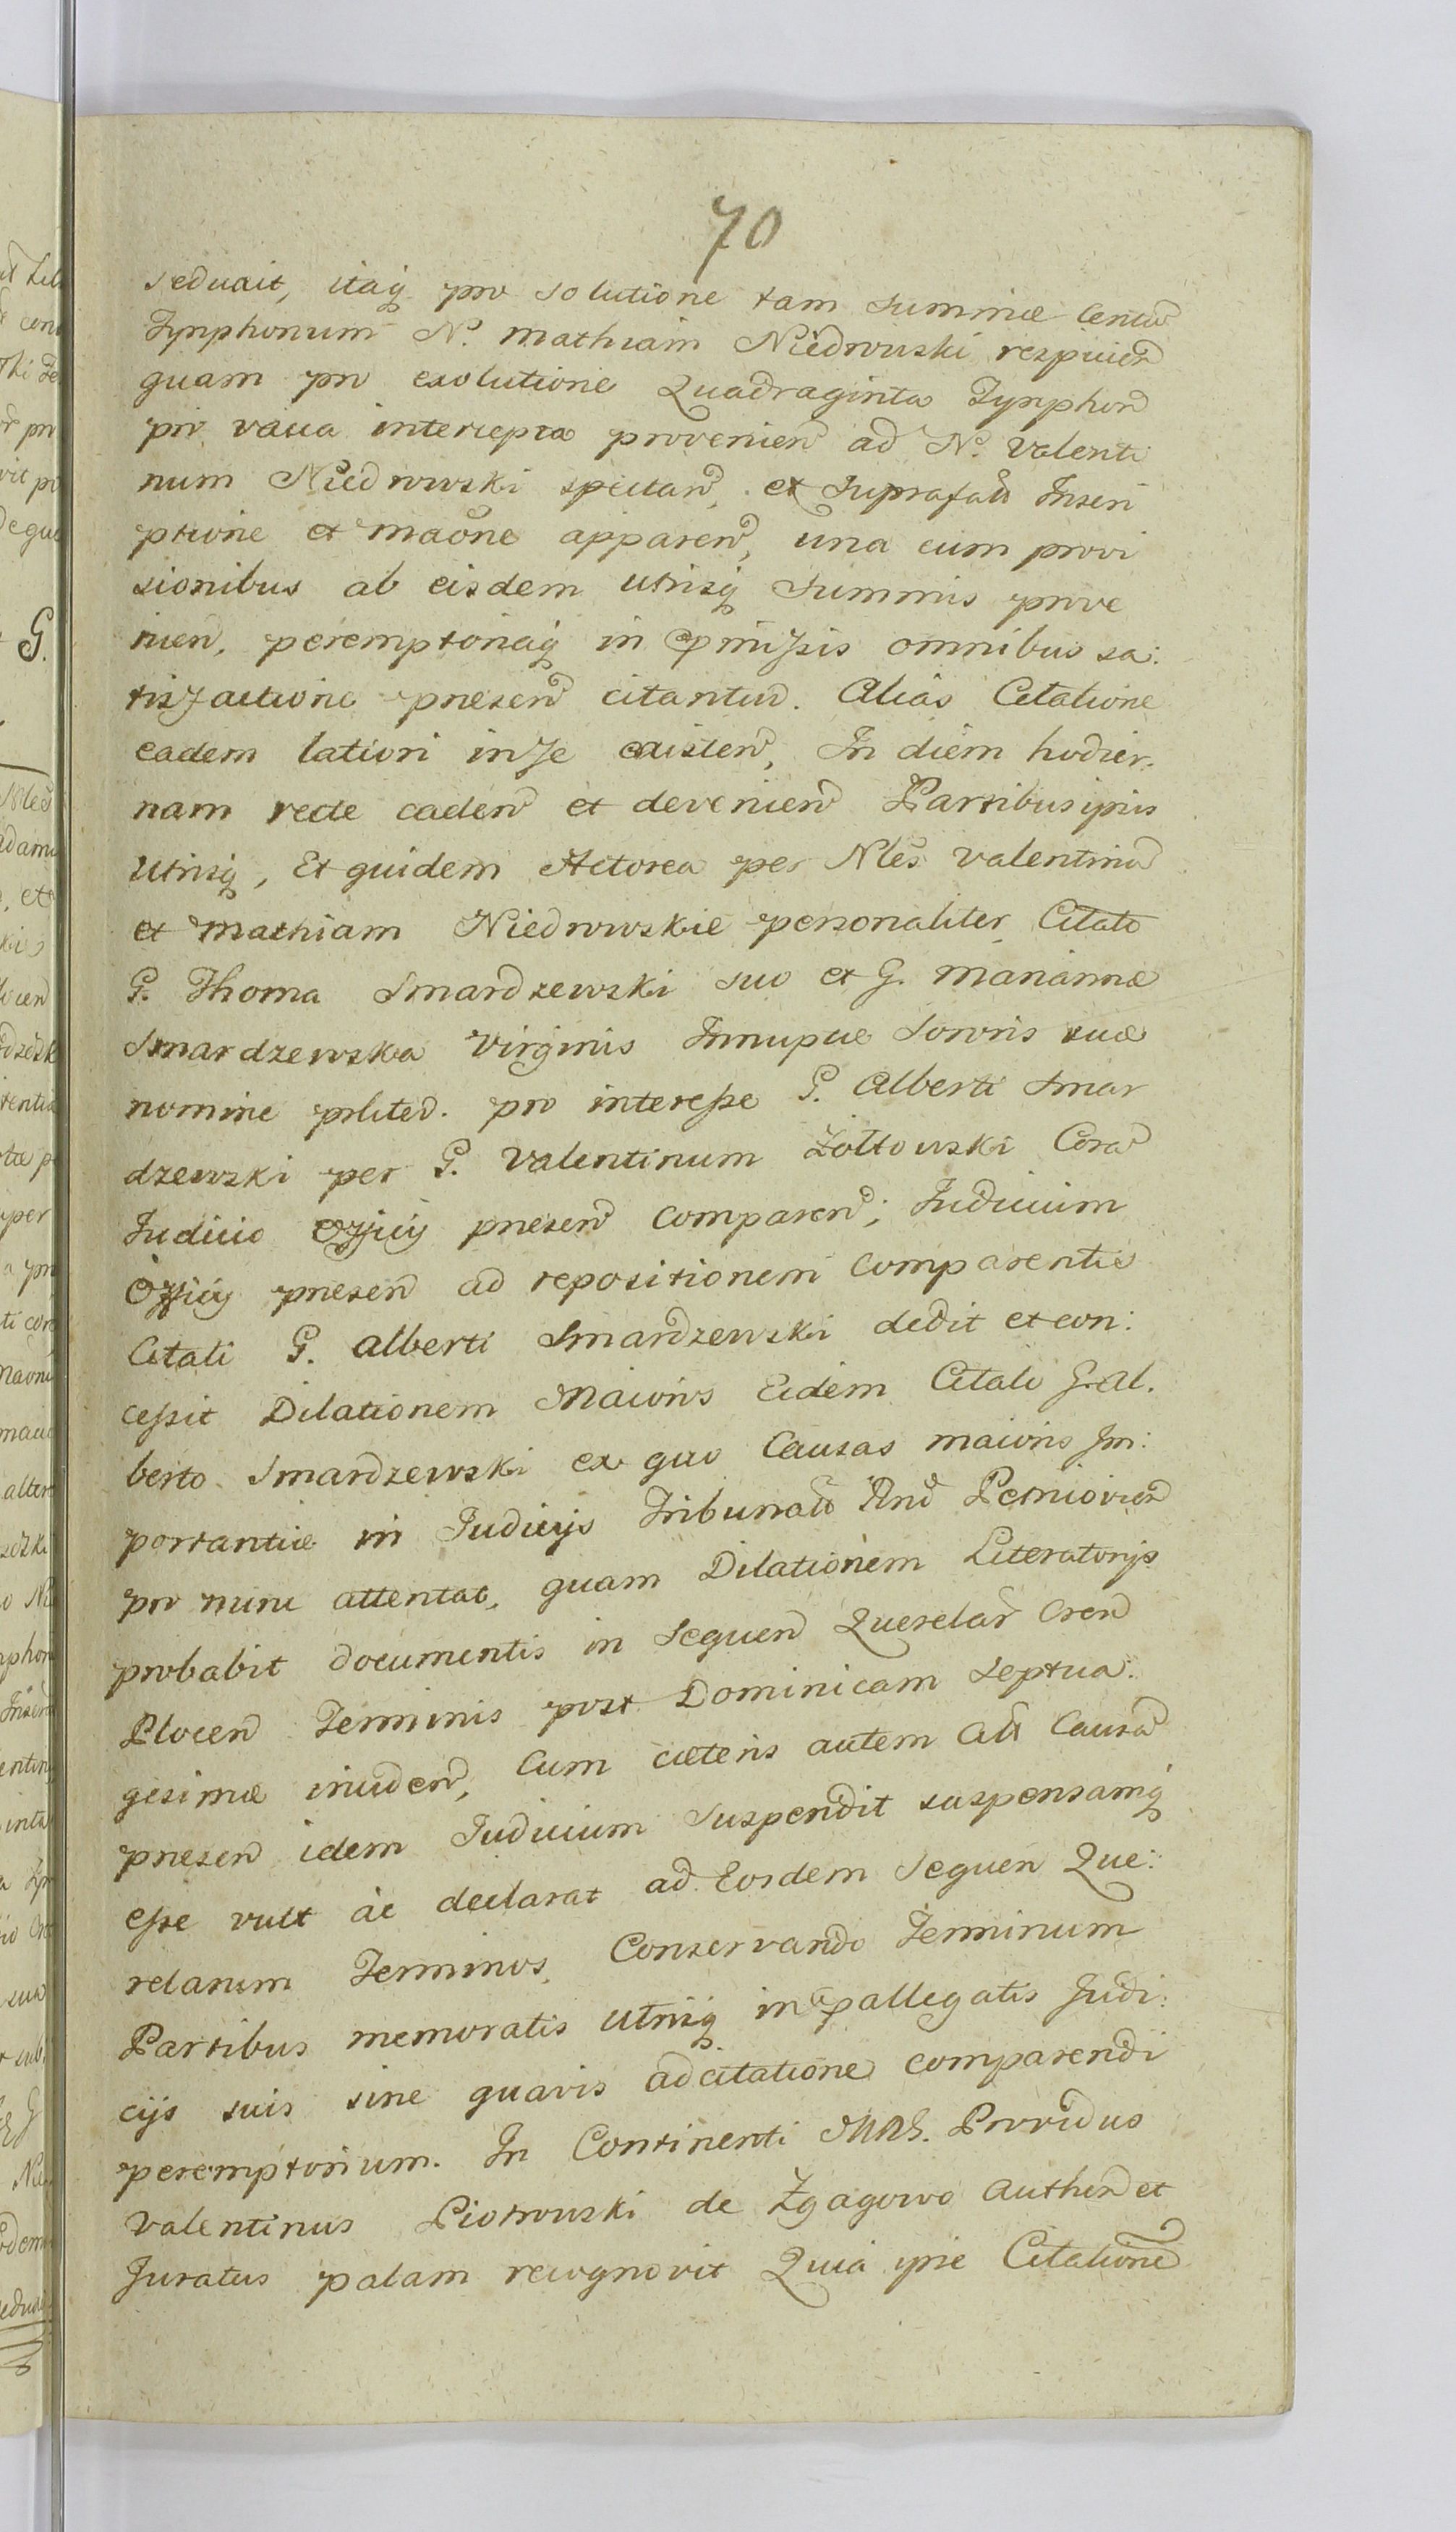 70
seduait, itaq pro solutione tam summæ Centũ
Tynphonum N. Mathiam Niedrowski respicieñ
quam pro exolutione Quadraginta Tynphoñ
pro vacca intercepta provenieñ ad N. Valenti
num Niedrowski spectañ, et suprafatã Inscri
ptione et maõne appareñ, una cum provi
sionibus ab eisdem utrisq summis prove
nieñ, peremptoriaq in præmissis omnibus sa:
tisfactione præseñ citantur. Alias Citatione
eadem latiori in se existeñ, In diem hodier:
nam recte cadeñ et devenieñ Partibus ipsis
utrisq, Et quidem Actorea per Nles Valentinũ
et Mathiam Niedrowskie personaliter Citato
G. Thoma Smardzewski suo et G. Mariannæ
Smardzewska Virginis Innuptæ Sororis suæ
nomine prliter. pro interesse G. Alberti Smar
dzewski per G. Valentinum Zołtowski Corã
Judicio Officij præseñ compareñ; Judicium
Officij præseñ ad repositionem comparentis
Citati G. Alberti Smardzewski dedit et con:
cessit Dilationem Maioris Eidem Citato G. Al.
berto Smardzewski ex quo Causas maioris Im:
portantiæ in Judicijs Tribunalũ Rnd Petricovieñ
pro nunc attentat, quam Dilationem Literatorijs
probabit documentis in Sequeñ Querelar Creñ
Ploceñ Terminis post Dominicam Septua:
gesimæ incideñ, Cum cæteris autem Citt Causã
præseñ idem Judicium suspendit suspensamq
esse vult ac declarat ad Eosdem Sequen Que:
relarum Terminos, Conservando Terminum
Partibus memoratis utrisq in præallegatis Judi:
cijs suis sine quavis adcitatione comparendi
peremptorium. In Continenti Mnl. Providus
Valentinus Piotrowski de Zgagowo Authen et
Juratus palam recognovit Quia ipse Citatione